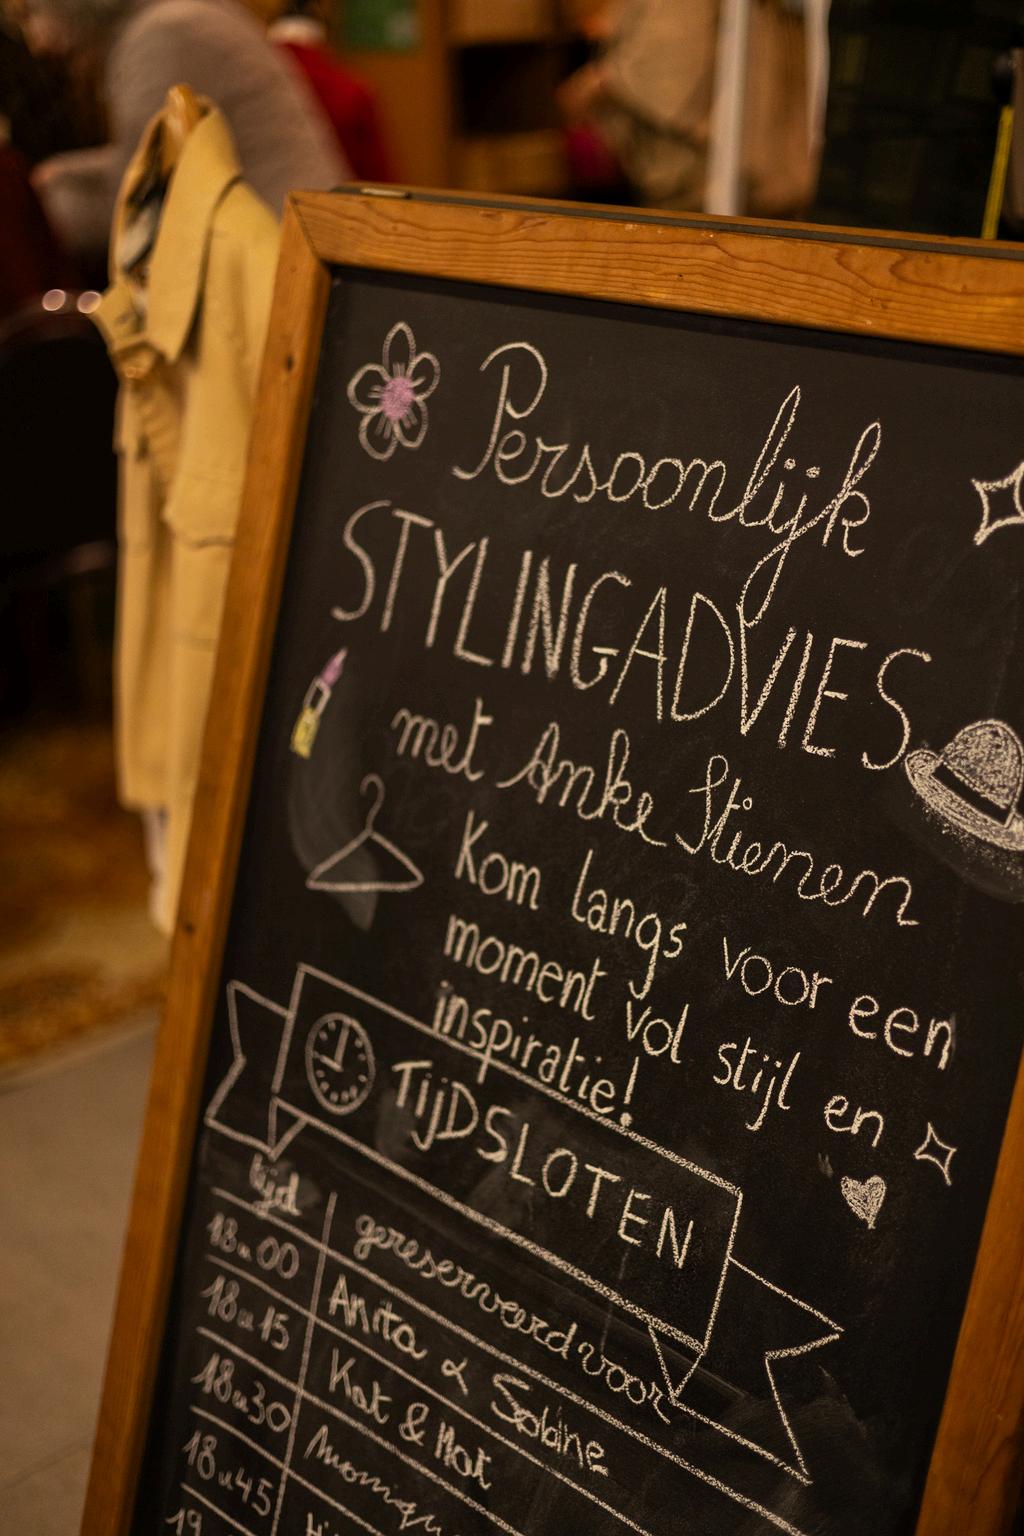 Persoonlijk
STYLINGADVIES
met Anke Stienen
Kom langs voor een
moment vol stijl en
inspiratie!
TIJDSLOTEN
tijd gereserveerd voor
18u00 Anita & Sabine
18u15 Kat & Mat
18u30
18u45
19